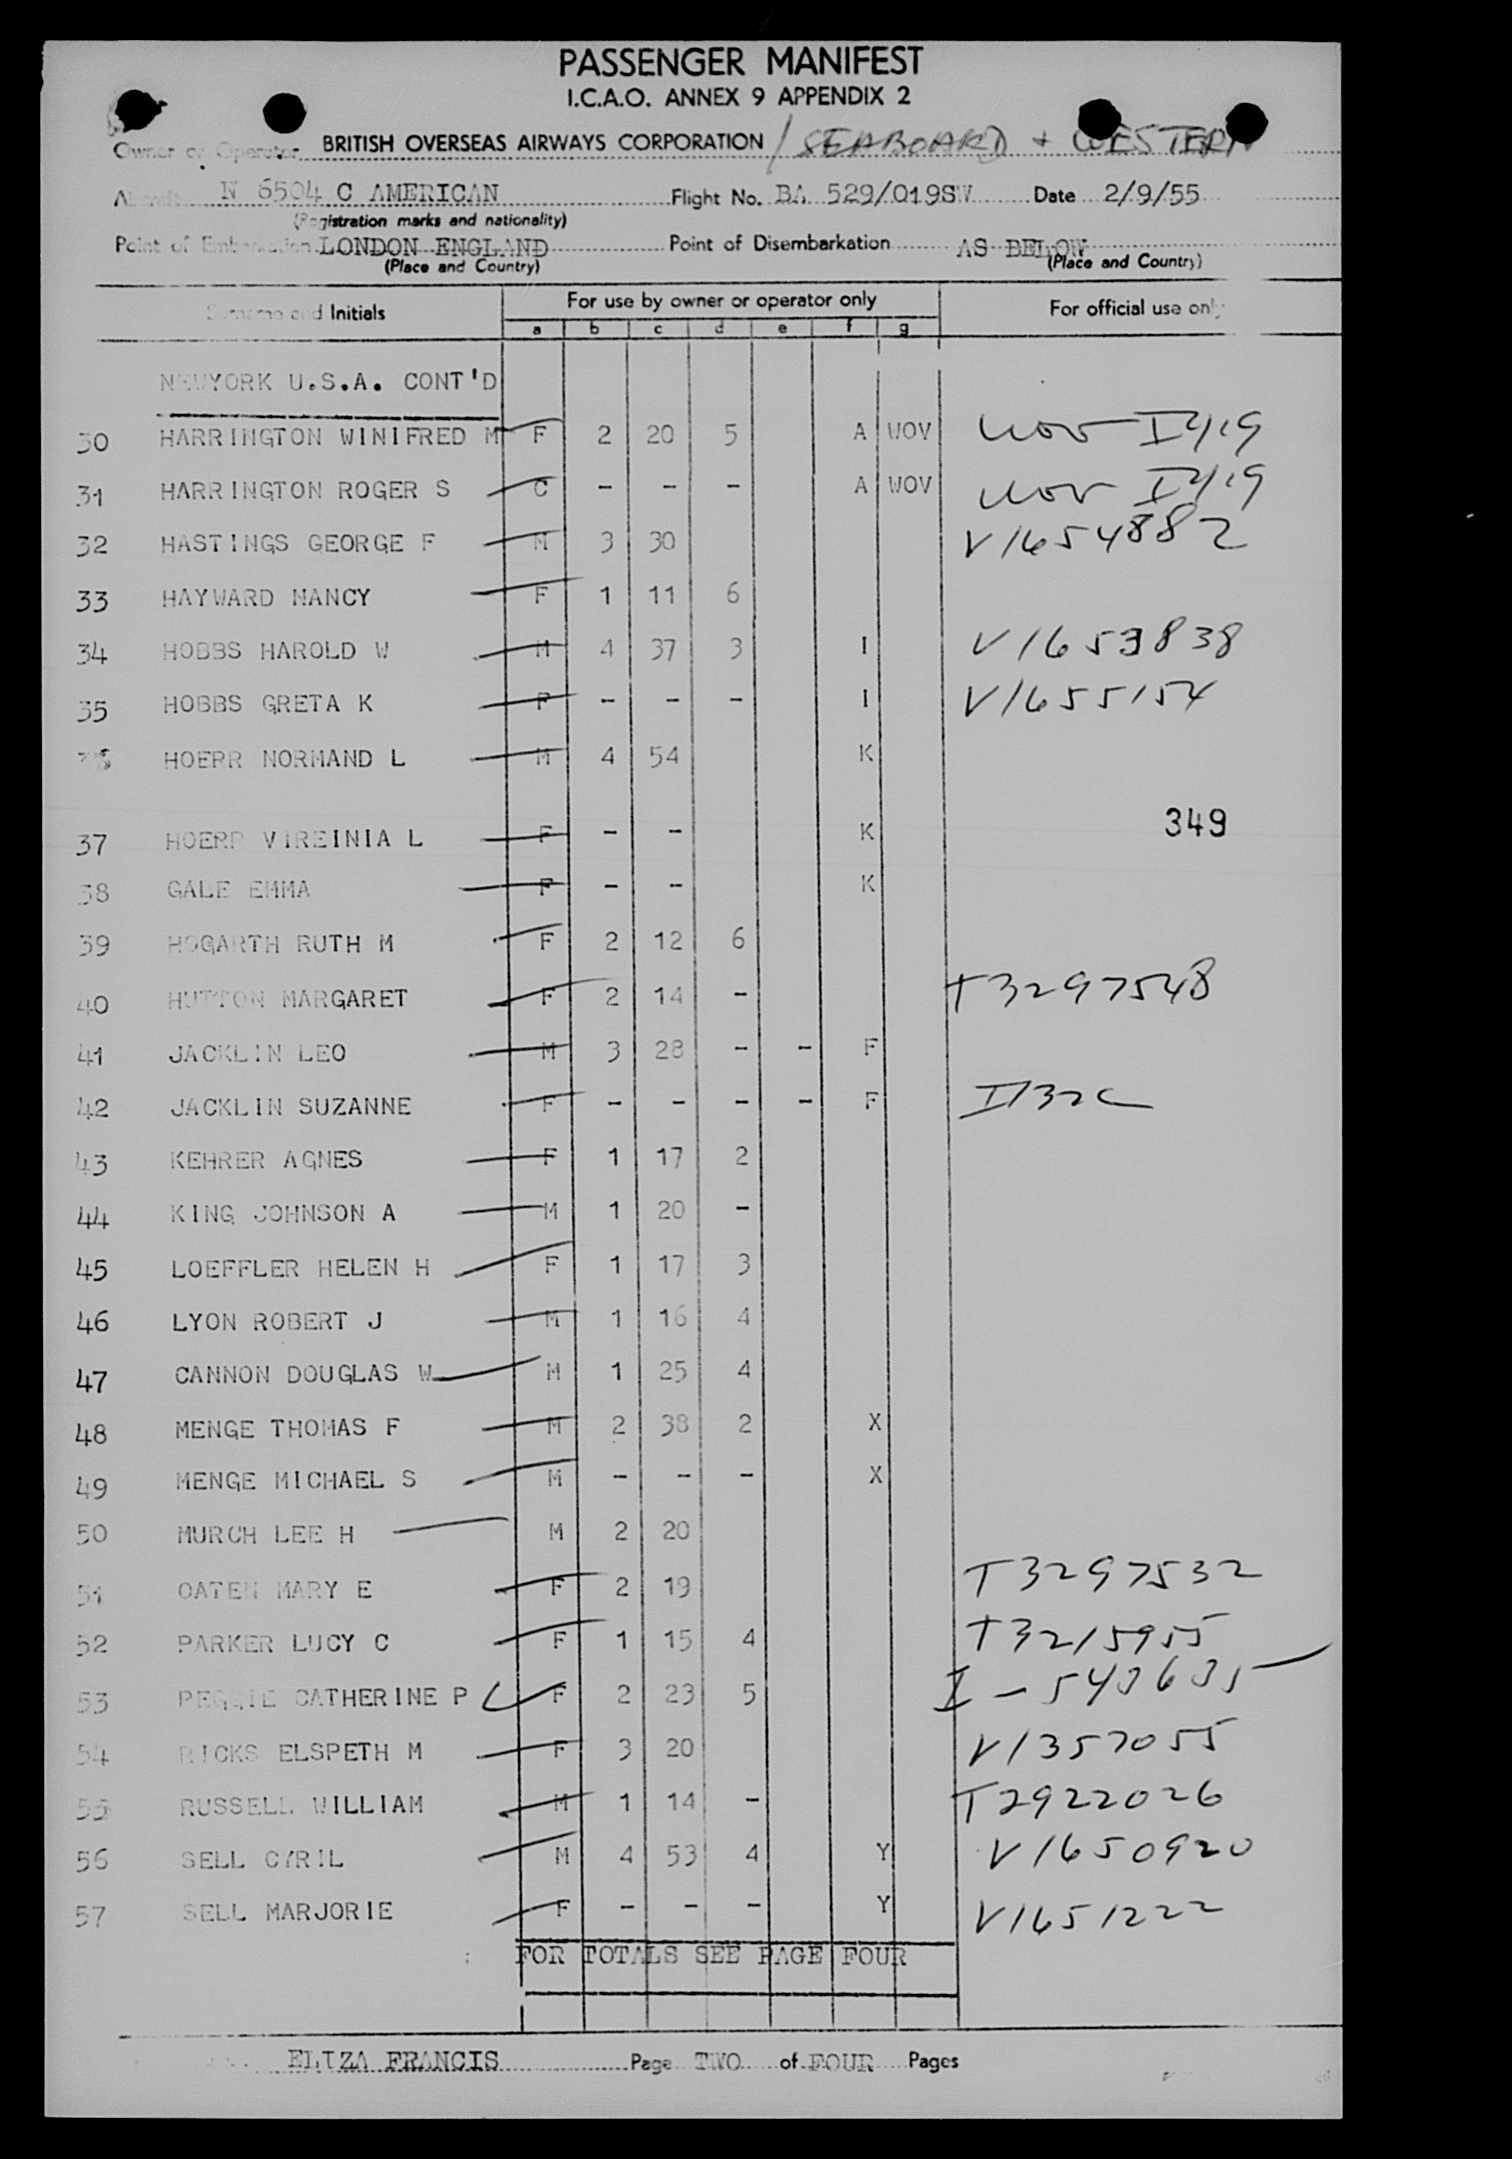 PASSENGER MANIFEST
I.C.A.O. ANNEX 9 APPENDIX 2
Owner or Operator BRITISH OVERSEAS AIRWAYS CORPORATION / SEABOARD + WESTERN
N 6504 C AMERICAN Flight No. BA 529/019SW Date 2/9/55
(Registration marks and nationality)
Point of Embarkation LONDON ENGLAND Point of Disembarkation AS BELOW
(Place and Country) (Place and Country)
Surname and Initials For use by owner or operator only For official use only
a b c d e f g
NEWYORK U.S.A. CONT'D
30 HARRINGTON WINIFRED M F 2 20 5 A WOV
31 HARRINGTON ROGER S C - - - A WOV
32 HASTINGS GEORGE F M 3 30 V1654882
33 HAYWARD NANCY F 1 11 6
34 HOBBS HAROLD W M 4 37 3 I V1653838
35 HOBBS GRETA K F - - - I V1655154
HOERR NORMAND L M 4 54 K
349
37 HOERR VIREINIA L F - - K
38 GALE EMMA F - - K
39 HOGARTH RUTH M F 2 12 6
40 HUTTON MARGARET F 2 14 - T3297548
41 JACKLIN LEO M 3 28 - - F
42 JACKLIN SUZANNE F - - - - F
43 KEHRER AGNES F 1 17 2
44 KING JOHNSON A M 1 20 -
45 LOEFFLER HELEN H F 1 17 3
46 LYON ROBERT J M 1 16 4
47 CANNON DOUGLAS W M 1 25 4
48 MENGE THOMAS F M 2 38 2 X
49 MENGE MICHAEL S M - - - X
50 MURCH LEE H M 2 20
51 OATEN MARY E F 2 19 T3297532
52 PARKER LUCY C F 1 15 4 T3215955
53 PEGGIE CATHERINE P F 2 23 5
54 RICKS ELSPETH M F 3 20 V1357055
55 RUSSELL WILLIAM M 1 14 - T2922026
56 SELL CYRIL M 4 53 4 Y V1650920
57 SELL MARJORIE F - - - Y V1651222
FOR TOTALS SEE PAGE FOUR
ELIZA FRANCIS Page TWO of FOUR Pages